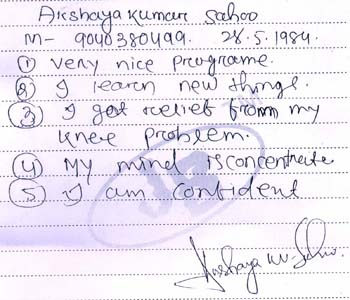 Akshaya Kumar Sahoo
M- 9040380499. 28.5.1984.
① very nice programe.
② I learn new things.
③ I got relief from my
knee problem.
④ My mind is concentrate
⑤ I am confident
Akshaya Kr. Sahoo.